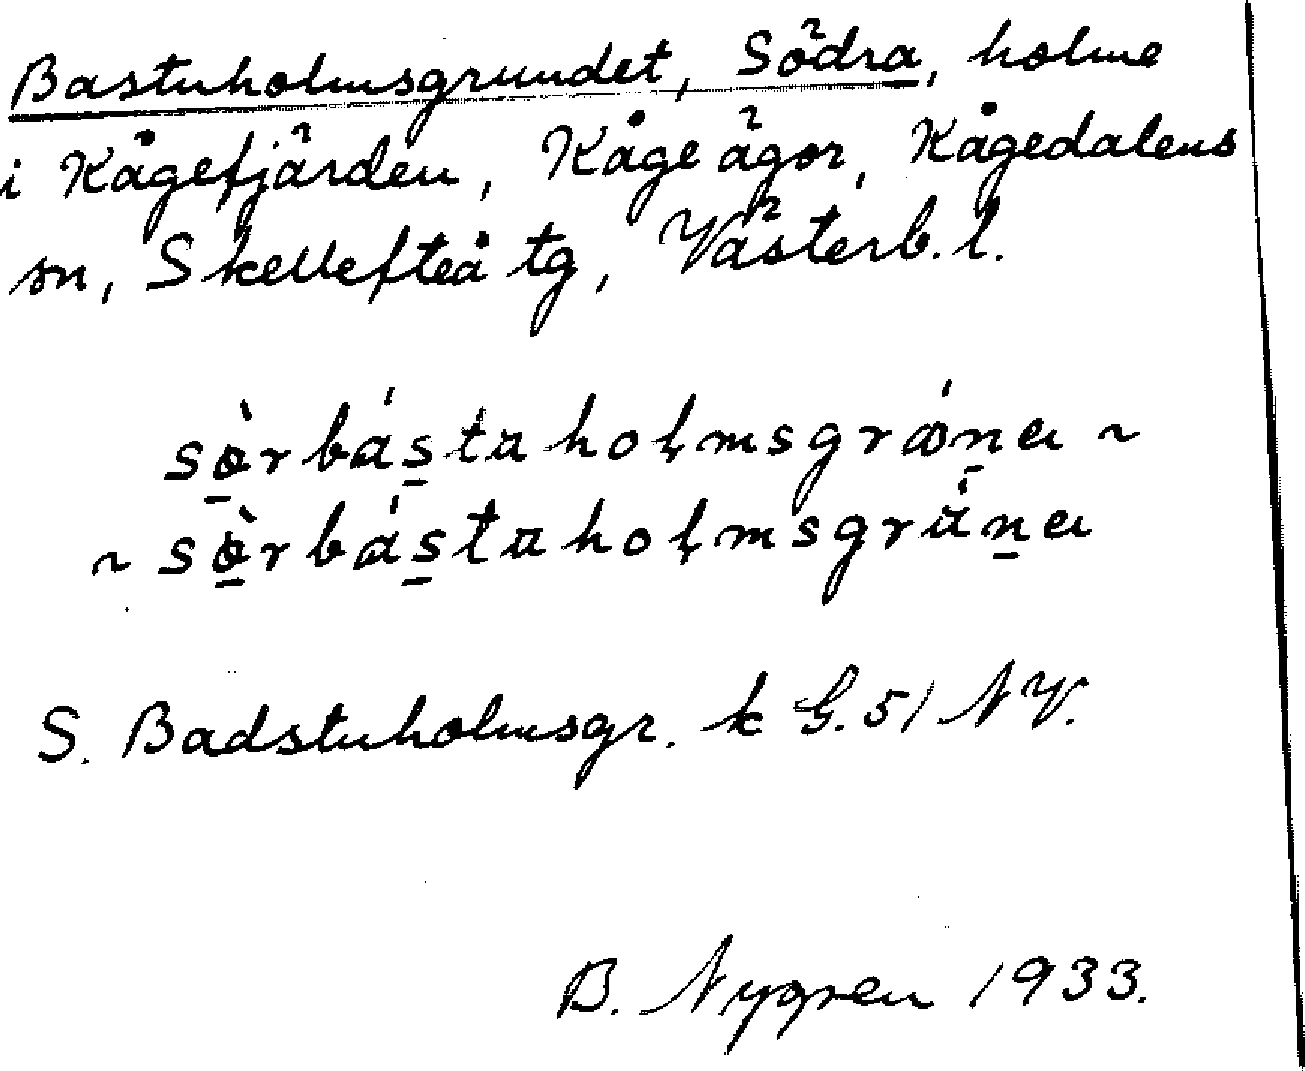 Bastuholmsgrundet, Södra, holme
i Kågefjärden, Kåge ägor, Kågedalens
sn, Skellefteå tg, Västerb. l.
sø̀rbástaholmsgrǿnɐ ~
~ sø̀rbástaholmsgránɐ
S. Badstuholmsgr. k G. 51 NV.
B. Nygren 1933.